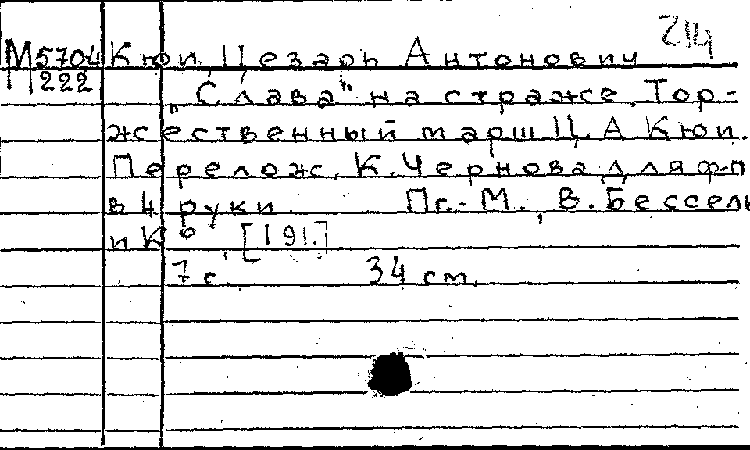 214
М5704 Кюи, Цезарь Антонович
222
„Слава" на страже. Тор-
жественный марш Ц. А. Кюи.
Перелож. К. Чернова для ф-п
в 4 руки Пг.-М., В. Бессель
и К°, [191.]
7 с. 34 см.